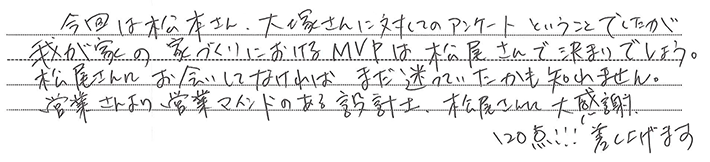 今回は松本さん、大塚さんに対してのアンケートということでしたが
我が家の家づくりにおけるMVPは松尾さんで決まりでしょう。
松尾さんにお会いしてなければまだ迷っていたかも知れません。
営業さんより営業マインドのある設計士、松尾さんに大感謝、
120点!!!差し上げます